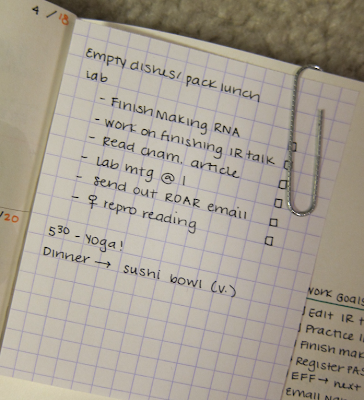 4/18
Empty dishes/pack lunch
Lab
- Finish Making RNA
- work on finishing IR talk
- Read cham. article
- Lab mtg @ 1
- Send out ROAR email
- ♀ repro reading
5³⁰ - Yoga!
Dinner → sushi bowl (v.)
/20
work Goals
Edit IR t
Practice I
Finish mak
Register PAS
EFF → next
email